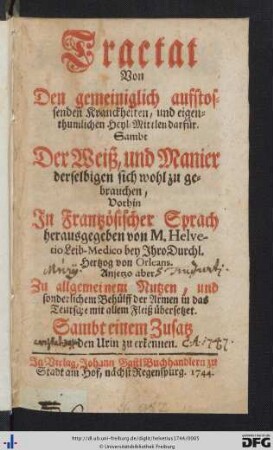 Tractat
Von
Den gemeiniglich auffstos-
senden Kranckheiten, und eigen-
thumlichen Heyl-Mittlen darfür.
Sambt
Der Weiß, und Manier
derselbigen sich wohl zu ge-
brauchen,
Vorhin
In Frantzösischer Sprach
herausgegeben von M. Helve-
tio Leib-Medico bey Ihro Durchl.
Hertzog von Orleans.
Anjetzo aber
Zu allgemeinem Nutzen, und
sonderlichem Behülff der Armen in das
Teutsche mit allem Fleiß übersetzet.
Sambt einem Zusatz
den Urin zu erkennen.
In Verlag, Johann Gastl Buchhandlern zu
Stadt am Hof, nächst Regenspurg. 1744.
http://dl.ub.uni-freiburg.de/diglit/helvetius1744/0005
gefördert durch die
DFG